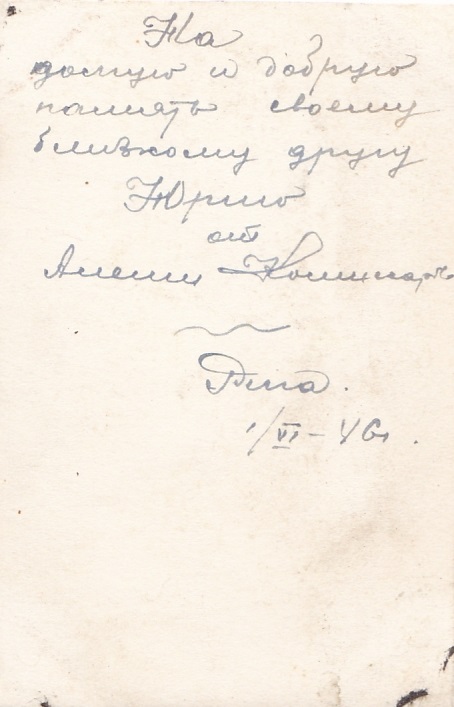 На
долгую и добрую
память своему
близкому другу
Юрию
от
Алеши
Рига.
1/VI – 46 г.